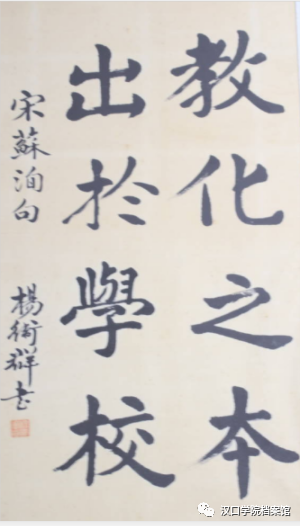 教化之本
出於學校
宋蘇洵句
楊衔群书
汉口学院档案馆